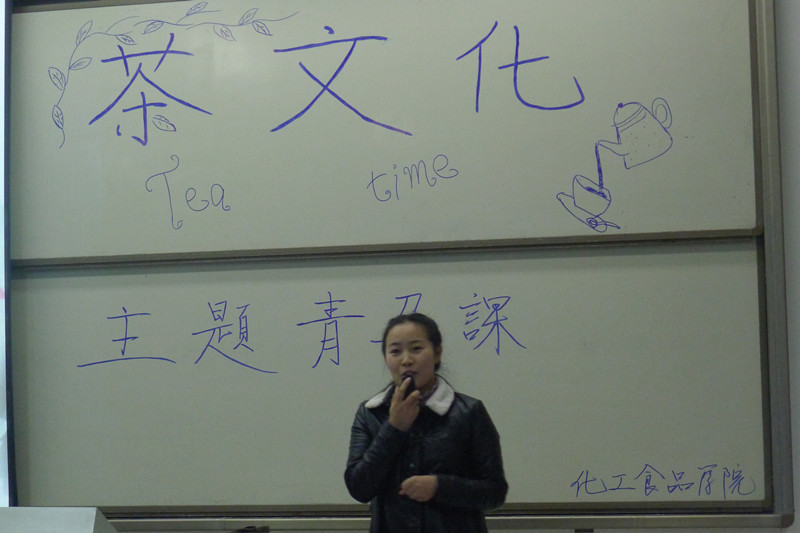 茶文化
Tea time
主題青 課
化工食品学院